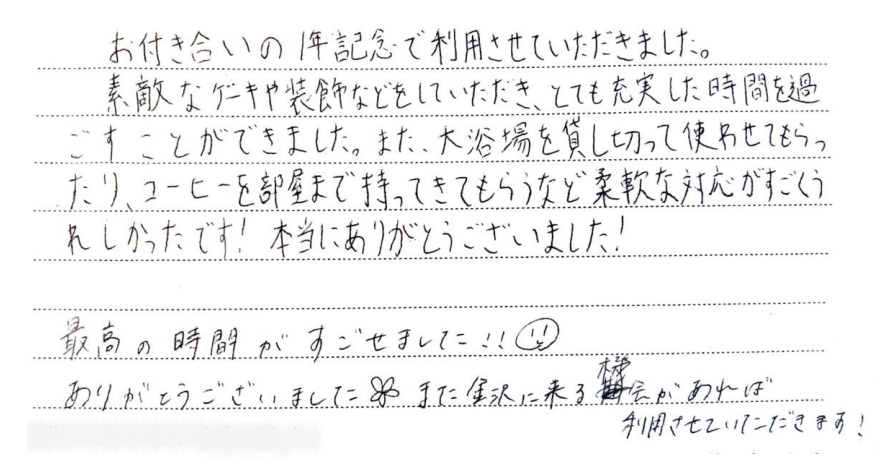 お付き合いの1年記念で利用させていただきました。
素敵なケーキや装飾などをしていただき、とても充実した時間を過
ごすことができました。また、大浴場を貸し切って使わせてもらっ
たり、コーヒーを部屋まで持ってきてもらうなど柔軟な対応がすごくう
れしかったです！本当にありがとうございました！
最高の時間がすごせました!!
ありがとうございました また金沢に来る機会があれば
利用させていただきます！